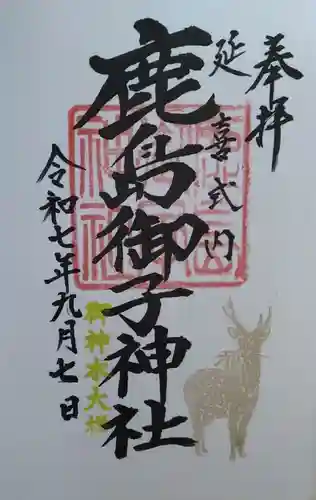 奉拝
延喜式内
鹿島御子神社
令和七年九月七日
御神木大欅